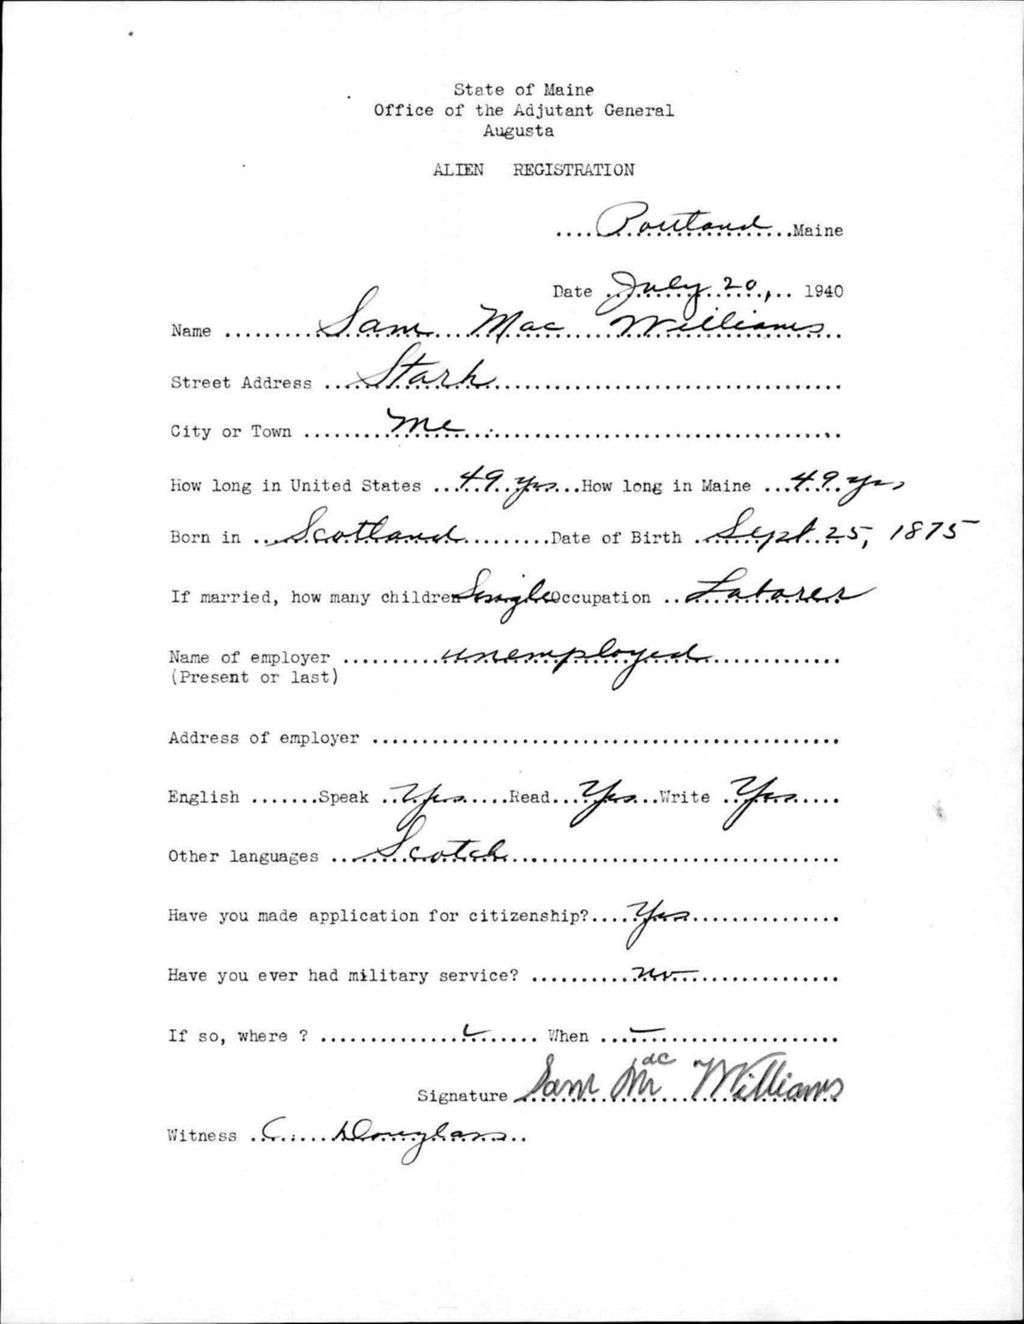 State of Maine
Office of the Adjutant General
Augusta
ALIEN REGISTRATION
....Portland....Maine
Date ..July 20,.. 1940
Name .........Sam Mac Williams..
Street Address ....Stark....................................
City or Town ........Me....................................
How long in United States ...49 yrs...How long in Maine ...49 yrs
Born in ...Scotland.........Date of Birth .Sept. 25, 1875
If married, how many children Single Occupation ..Laborer
Name of employer ..........unemployed.............
(Present or last)
Address of employer ...............................................
English .......Speak ..Yes.....Read...Yes...Write ..Yes.....
Other languages ...Scotch.................................
Have you made application for citizenship?....Yes...............
Have you ever had military service? ..........no...............
If so, where ? ...................... When ........................
Signature Sam Mac Williams
Witness .C. Douglass..